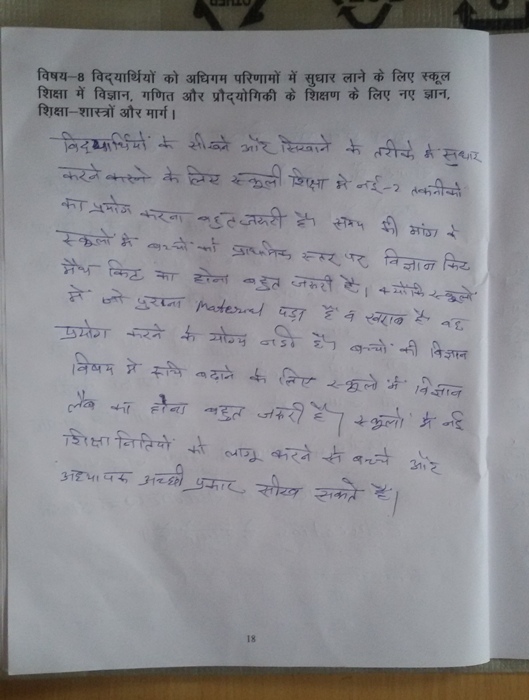 विषय–8 विद्यार्थियों को अधिगम परिणामों में सुधार लाने के लिए स्कूल
शिक्षा में विज्ञान, गणित और प्रौद्योगिकी के शिक्षण के लिए नए ज्ञान,
शिक्षा–शास्त्रों और मार्ग।
विद्यार्थियों के सीखने और सिखाने के तरीके मे सुधार
करने के लिए स्कूली शिक्षा मे नई-2 तकनीको
का प्रयोग करना बहुत जरूरी है। समय की मांग है
स्कूलों मे बच्चों को प्राथमिक स्तर पर विज्ञान किट
मैथ किट का होना बहुत जरूरी है। क्योंकि स्कूलों
में जो पुराना Material पड़ा है व खराब है वह
प्रयोग करने के योग्य नही है। बच्चों की विज्ञान
विषय मे रूचि बढाने के लिए स्कूलों में विज्ञान
लैब का होना बहुत जरूरी है। स्कूलों मे नई
शिक्षा नितियो को लागू करने से बच्चे और
अध्यापक अच्छी प्रकार सीख सकते है।
18